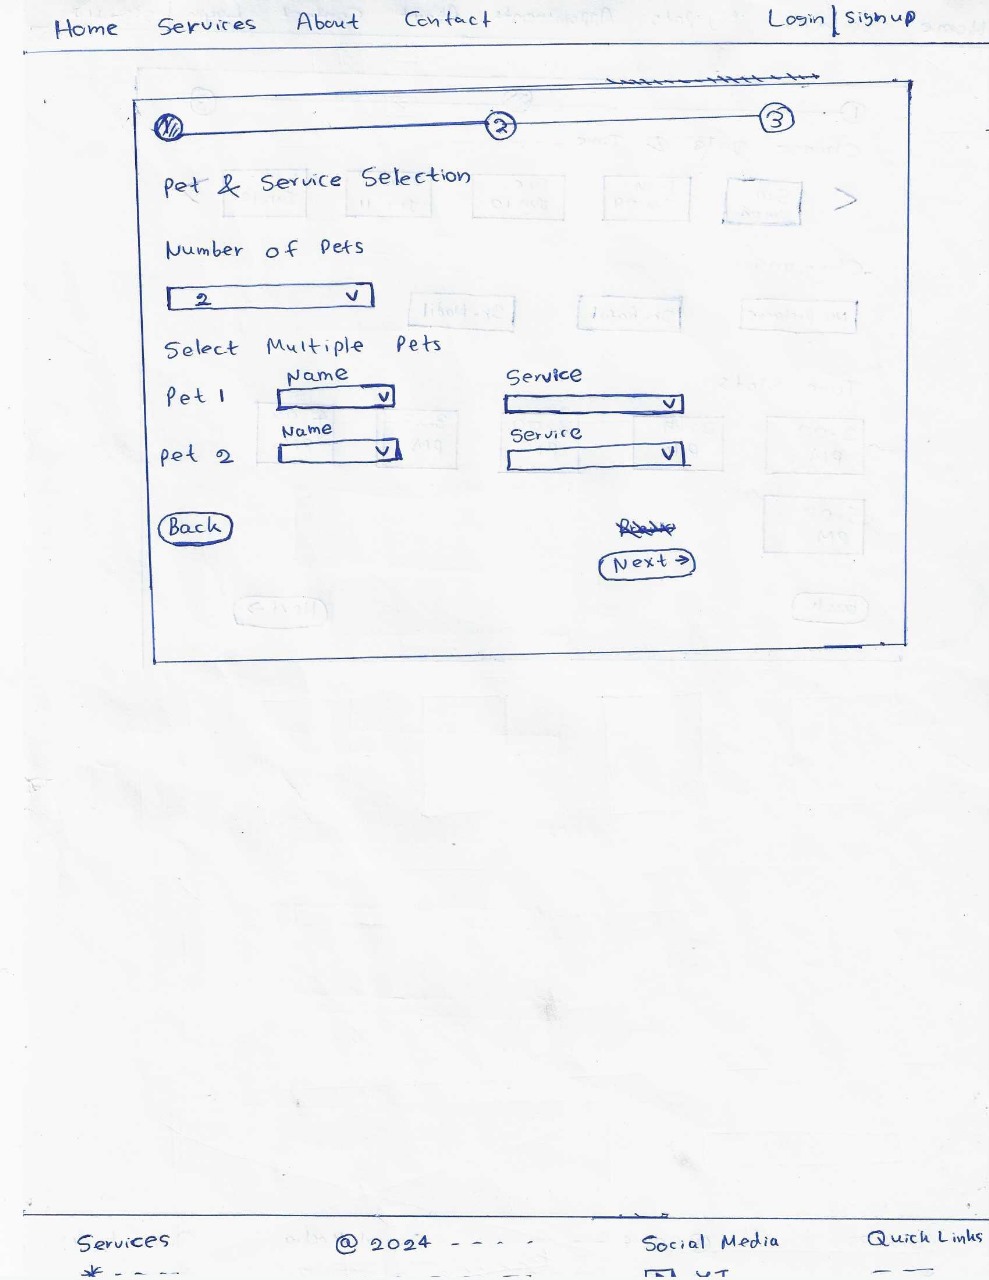 Home Services About Contact Login | Signup
2 3
Pet & Service Selection
Number of Pets
2
Select Multiple Pets
Name Service
Pet 1
Name Service
Pet 2
Back
Next →
Services @ 2024 - - - - Social Media Quick Links
* - - - -